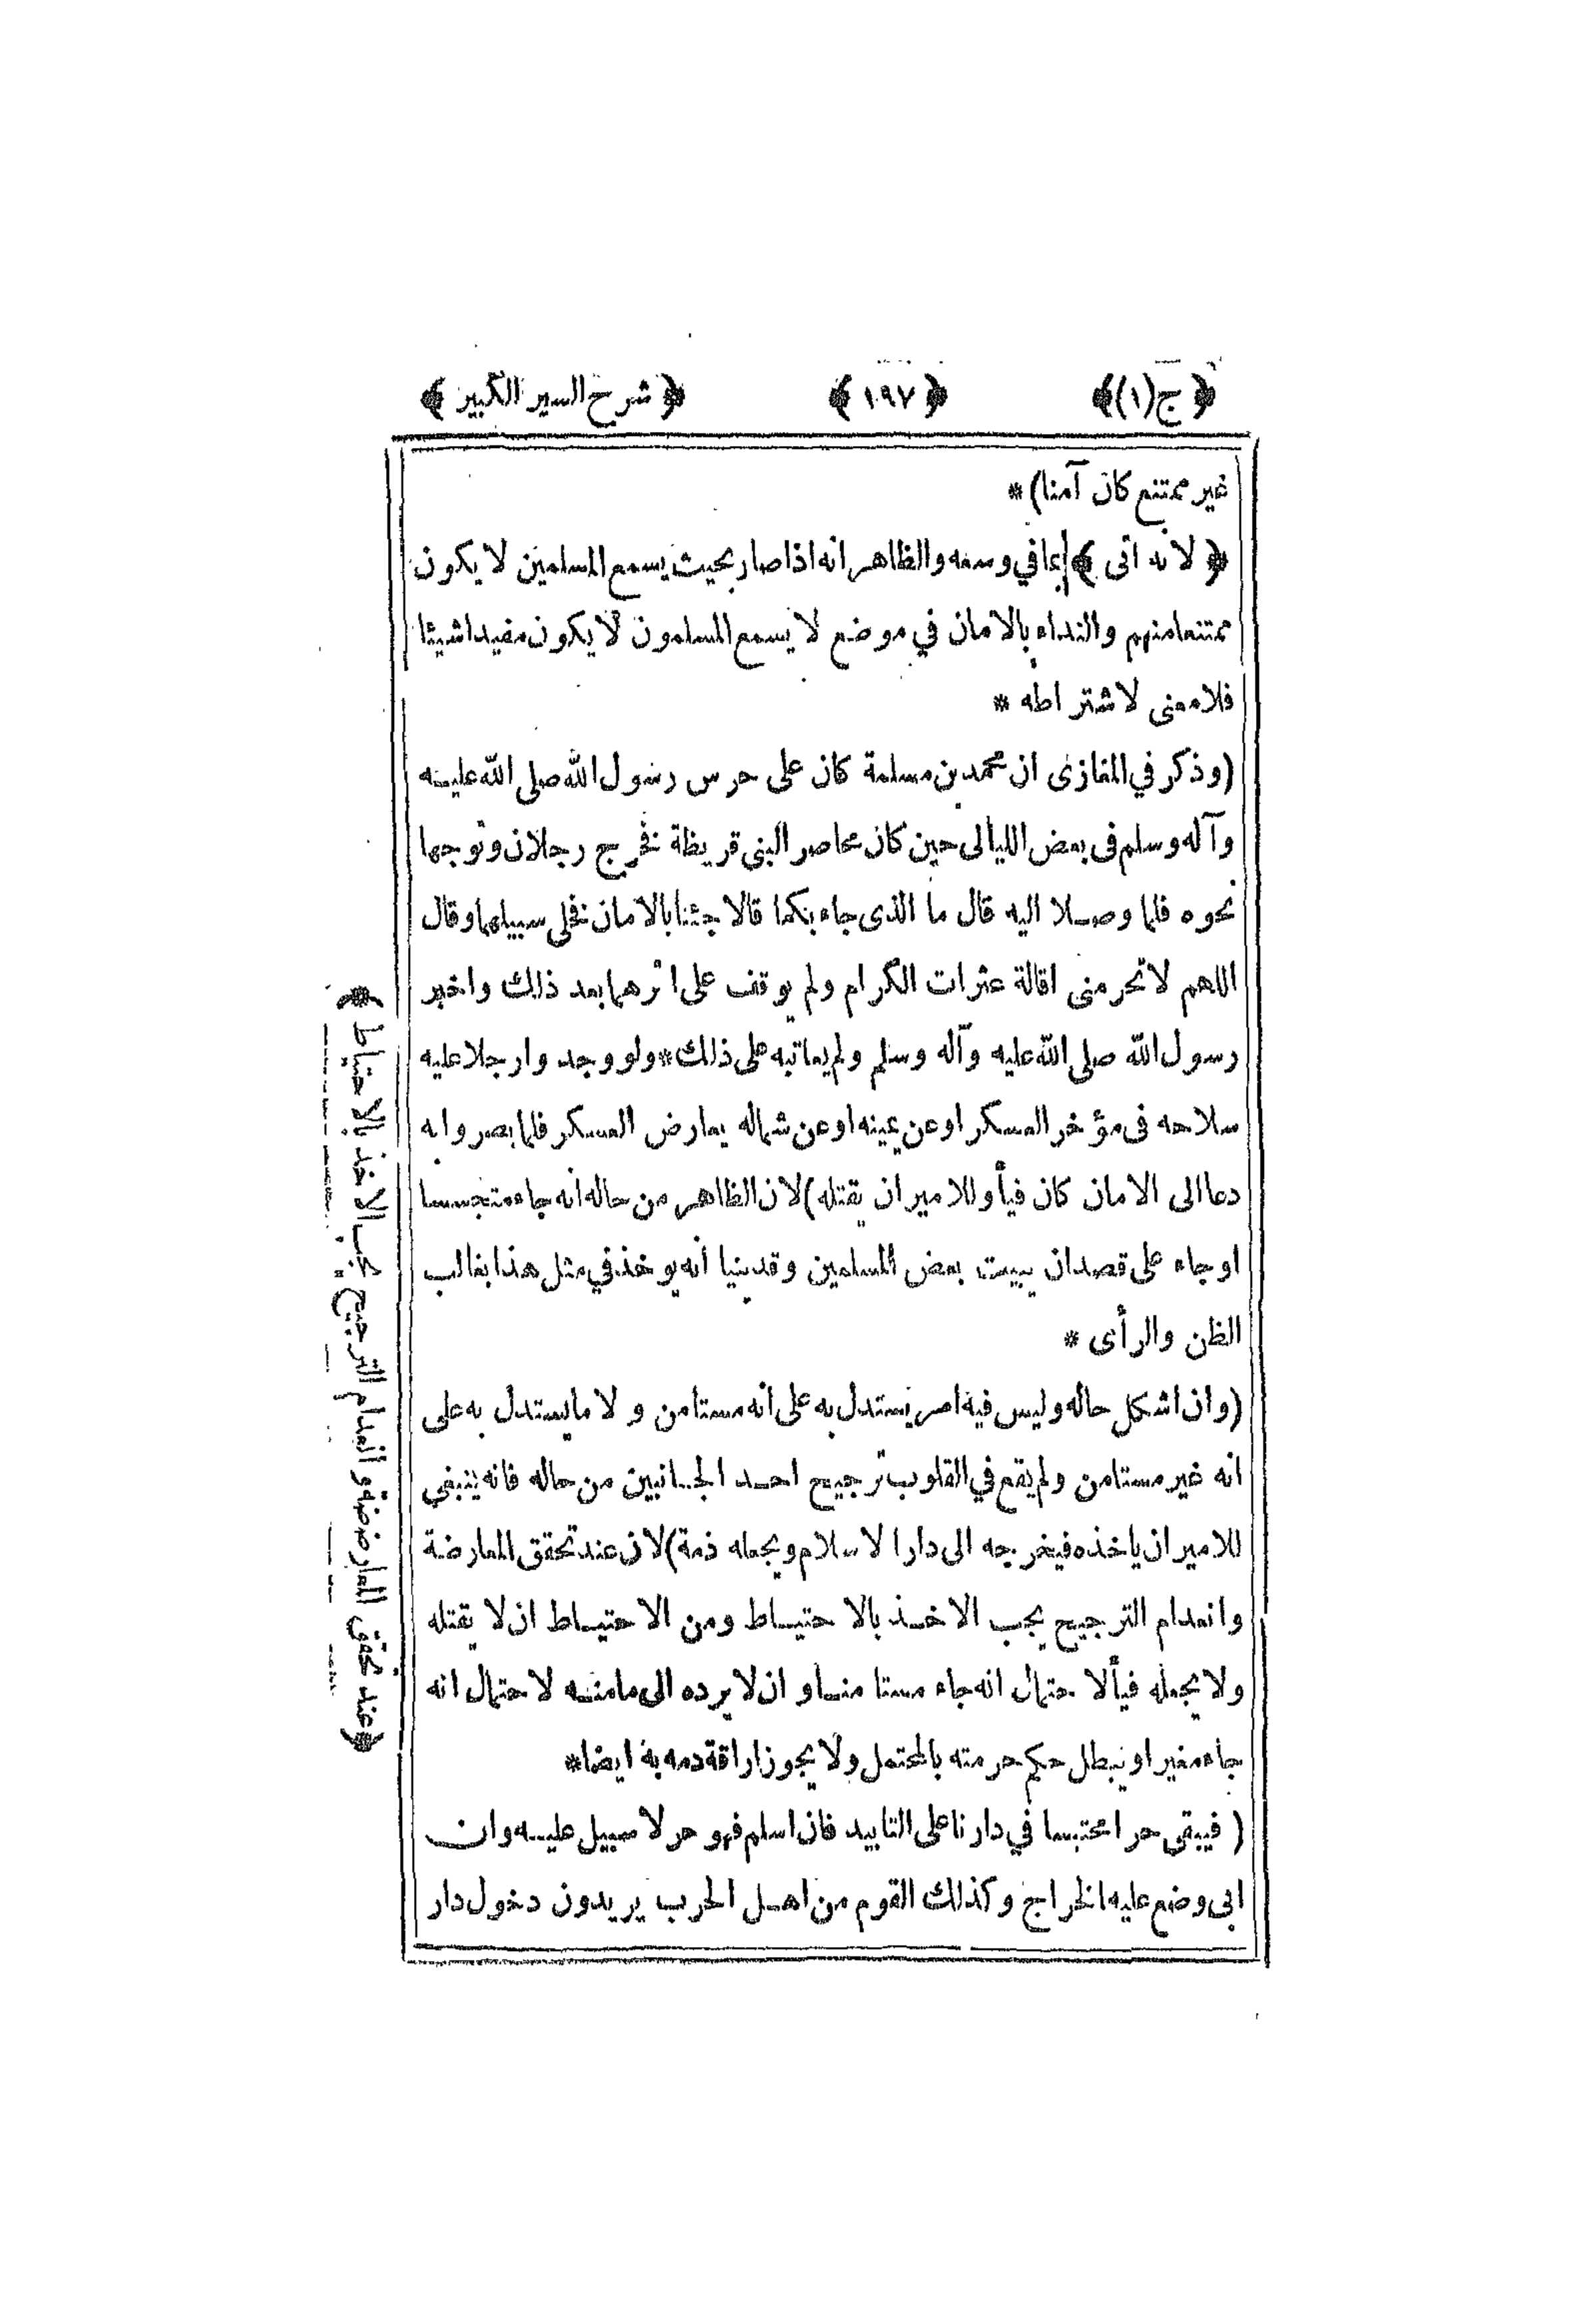 ﴿ ج(١)﴾ ﴿ ١٩٧ ﴾ ﴿ شرح السير الكبير ﴾
غير ممتنع كان آمنا) *
﴿ لانه اتى ﴾ بما في وسعه والظاهر انه اذا صار بحيث يسمع المسلمين لا يكون
ممتنعا منهم والنداء بالامان في موضع لا يسمع المسلمون لا يكون مفيدا شيئا
فلا معنى لاشتراطه *
(وذكر في المغازى ان محمد بن مسلمة كان على حرس رسول الله صلى الله عليه
وآله وسلم فى بعض الليالى حين كان محاصر البنى قريظة فخرج رجلان وتوجها
نحوه فلما وصلا اليه قال ما الذى جاء بكما قالا جئنا بالامان فخلى سبيلهما وقال
اللهم لا تحرمنى اقالة عثرات الكرام ولم يوقف على اثرهما بعد ذلك واخبر
رسول الله صلى الله عليه وآله وسلم ولم يعاتبه على ذلك * ولو وجدوا رجلا عليه
سلاحه فى مؤخر العسكر او عن يمينه او عن شماله يعارض العسكر فلما بصروا به
دعا الى الامان كان فيأ وللامير ان يقتله) لان الظاهر من حاله انه جاء متجسسا
او جاء على قصد ان يبيت بعض المسلمين وقد بينا انه يوخذ في مثل هذا بغالب
الظن والرأى *
(وان اشكل حاله وليس فيه امر يستدل به على انه مستامن و لا ما يستدل به على
انه غير مستامن ولم يقع في القلوب ترجيح احد الجانبين من حاله فانه ينبغي
للامير ان ياخذه فيخرجه الى دار الاسلام ويجعله ذمة) لان عند تحقق المعارضة
وانعدام الترجيح يجب الاخذ بالاحتياط ومن الاحتياط ان لا يقتله
ولا يجعله فيأ لاحتمال انه جاء مستامنا وان لا يرده الى مامنه لاحتمال انه
جاء مغيرا و يبطل حكم حرمته بالمحتمل ولا يجوز اراقة دمه به ايضا *
( فيبقى حرا محتبسا في دارنا على التابيد فان اسلم فهو حر لا سبيل عليه وان
ابى وضع عليه الخراج وكذلك القوم من اهل الحرب يريدون دخول دار
﴿عند تحقق المعارضة و انعدام الترجيح يجب الاخذ بالاحتياط﴾